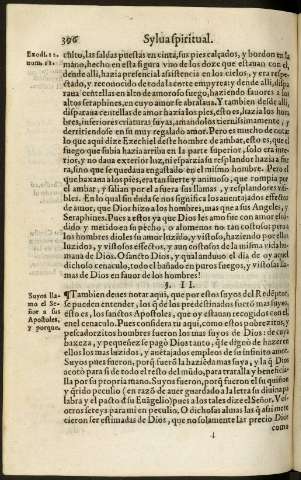 396 Sylua spiritual.
Exodi. 12.
num. 11.
culto, las faldas puestas en cinta, sus pies calçados, y bordon en la
mano, hecho en esta figura vno de los doze que estauan con el,
desde alli, hazia presencial asistencia en los cielos, y era respe-
ctado, y reconocido de toda la corte empyrea: y desde alli, dispa-
raua centellas en alto de amoroso fuego, haziendo fauores a los
altos seraphines, en cuyo amor se abrasaua. Y tambien desde alli,
disparaua centellas de amor hazia los pies, esto es, hazia los hom-
bres, inferiores criaturas suyas, amandolos tiernissimamente, y
derritiendose en su muy regalado amor. Pero es mucho de notar
lo que aqui dize Ezechiel deste hombre de ambar, esto es, que el
fuego que subia hazia arriba en la parte superior, solo era inte-
rior, y no daua exterior luz, ni esparzia su resplandor hazia a fue
ra, sino que se quedaua engastado en el mismo hombre. Pero el
que baxaua a los pies, era tan fuerte y animoso, que rompia por
el ambar, y salian por el a fuera sus llamas, y resplandores vi-
bles. En lo qual sin duda se nos significa los auentajados effectos
de amor, que Dios hizo a los hombres, mas que a sus Angeles, y
Seraphines. Pues a estos ya que Dios les amo fue con amor escō-
dido y metido en su pecho, o alomenos no tan costoso: pero a
los hombres dioles su amor luzido, y vistoso, haziendo por ellos
luzidos, y vistosos effectos, y aun costosos de la misma vida hu-
mana de Dios. O sancto Dios, y qual anduuo el dia de oy aquel
dichoso cenaculo, todo el bañado en puros fuegos, y vistosas lla-
mas de Dios en fauor de los hombres!
§. II.
Suyos lla-
mo el Se-
ñor a sus
Apostoles,
y porque.
¶ Tambien deues notar aqui, que por estos suyos del Redēptor
se pueden entender, los q̃ de los predestinados fuerō mas suyos,
esto es, los sanctos Apostoles, que oy estauan recogidos con el,
en el cenaculo. Pues considera tu aqui, como estos pobrezitos, y
pescadorzitos hombres fueron los mas suyos de Dios: de cuya
baxeza, y pequeñez se pagò Dios tanto, q̃ se dignò de hazerles
ellos los mas luzidos, y auentajados empleos de su infinito amor.
Suyos pues fueron, porq̃ fuerō la haziēda mas suya, y la q̃ Dios
acotò para si de todo el resto del mūdo, para tratarla y benefici-
alla por su propria mano. Suyos fueron, porq̃ fueron el su quiñon
y q̃rido peculio (en razō de auer guardado a la letra su diuina pa
labra y el pacto d̃ su Euāgelio) pues a los tales dize el Señor. Vos-
otros sereys para mi en peculio. O dichosas almas las q̃ assi mere
cieron ser estimadas de Dios, que no solamente las precio Dios
como